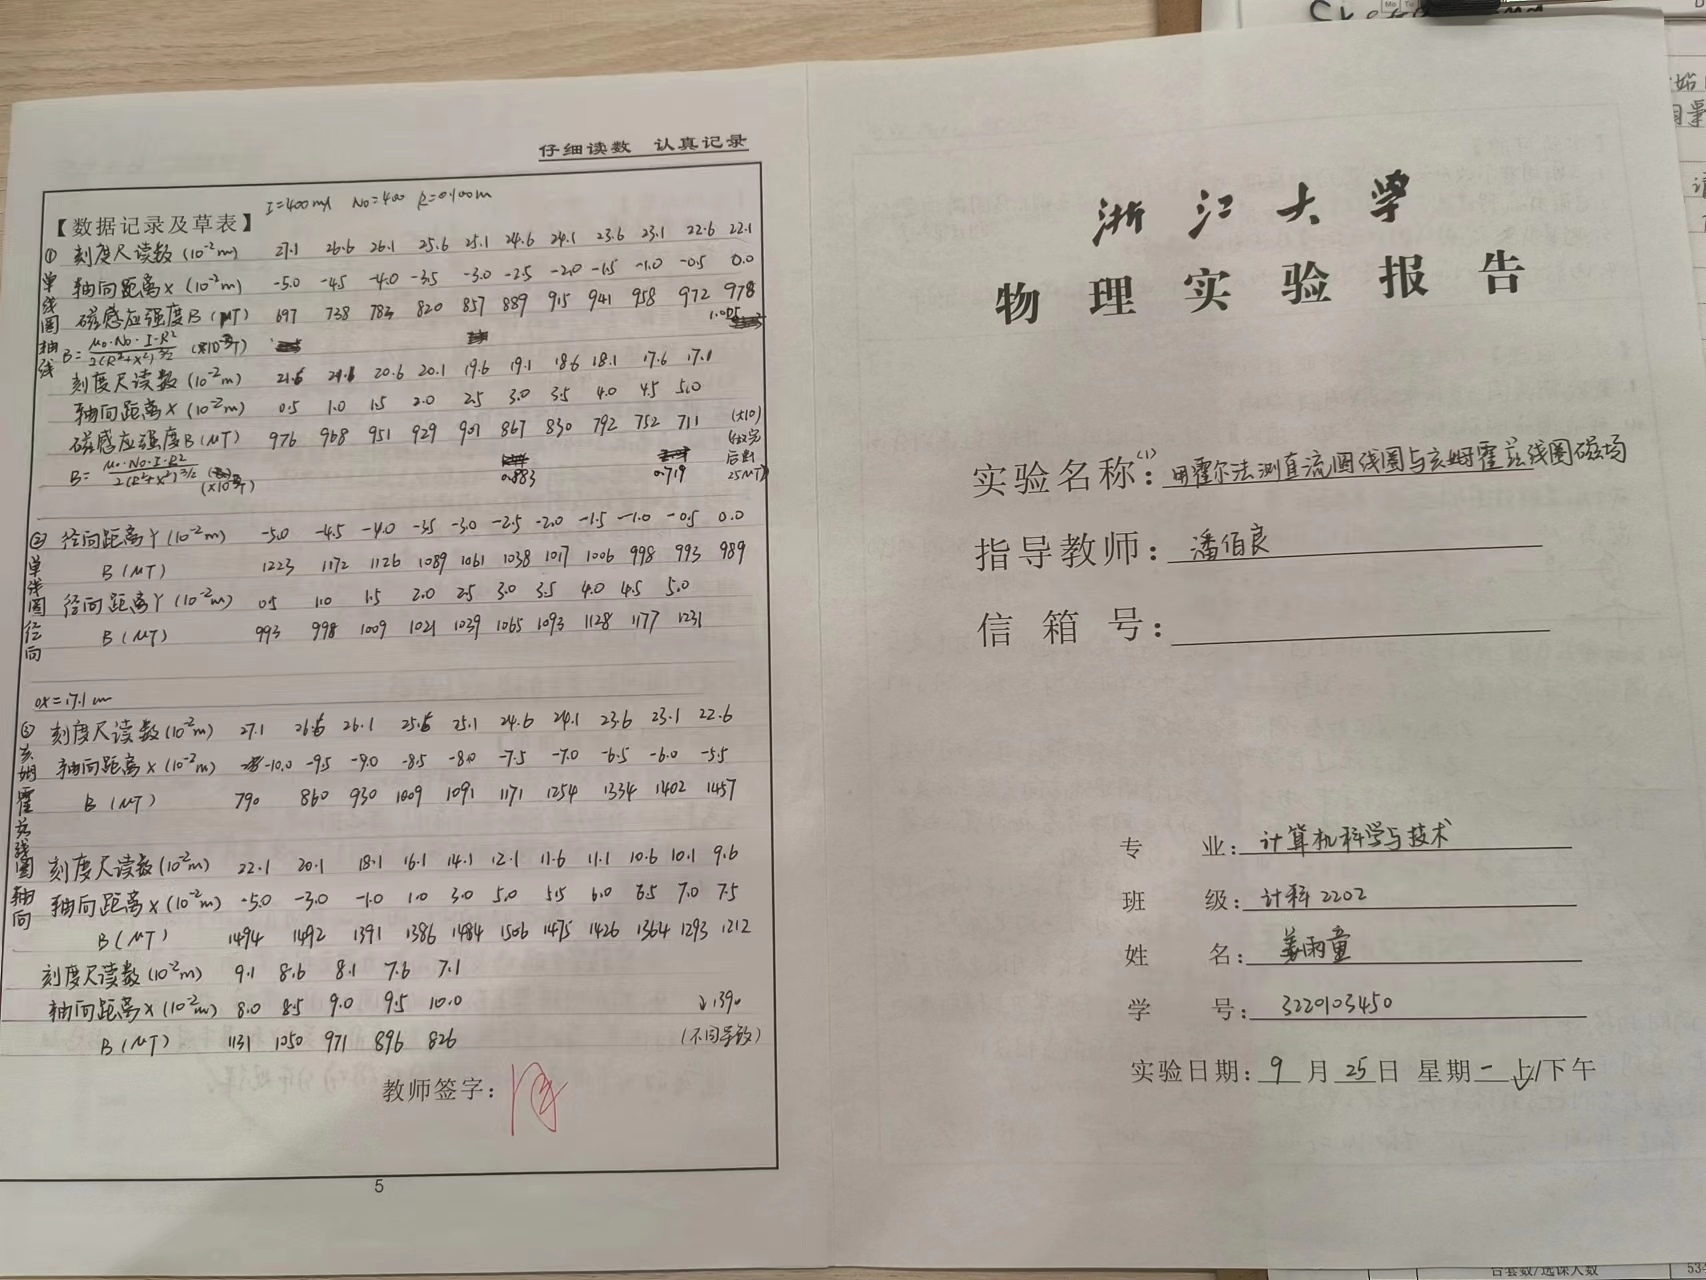 仔细读数 认真记录
【数据记录及草表】 I=400mA N₀=400 R=0.100m
① 单线圈轴线
刻度尺读数(10⁻²m) 27.1 26.6 26.1 25.6 25.1 24.6 24.1 23.6 23.1 22.6 22.1
轴向距离X(10⁻²m) -5.0 -4.5 -4.0 -3.5 -3.0 -2.5 -2.0 -1.5 -1.0 -0.5 0.0
磁感应强度B(μT) 697 738 783 820 857 889 915 941 958 972 978
B=μ₀·N₀·I·R²/2(R²+X²)^3/2 (×10⁻³T) 1.005
刻度尺读数(10⁻²m) 21.6 21.1 20.6 20.1 19.6 19.1 18.6 18.1 17.6 17.1
轴向距离X(10⁻²m) 0.5 1.0 1.5 2.0 2.5 3.0 3.5 4.0 4.5 5.0
磁感应强度B(μT) 976 968 951 929 901 867 830 792 752 711
B=μ₀·N₀·I·R²/2(R²+X²)^3/2 (×10⁻³T) 0.883 0.719
② 单线圈径向
径向距离Y(10⁻²m) -5.0 -4.5 -4.0 -3.5 -3.0 -2.5 -2.0 -1.5 -1.0 -0.5 0.0
B(μT) 1223 1172 1126 1089 1061 1038 1017 1006 998 993 989
径向距离Y(10⁻²m) 0.5 1.0 1.5 2.0 2.5 3.0 3.5 4.0 4.5 5.0
B(μT) 993 998 1009 1021 1039 1065 1093 1128 1177 1231
ox=17.1cm
③ 亥姆霍兹线圈轴向
刻度尺读数(10⁻²m) 27.1 26.6 26.1 25.6 25.1 24.6 24.1 23.6 23.1 22.6
轴向距离X(10⁻²m) -10.0 -9.5 -9.0 -8.5 -8.0 -7.5 -7.0 -6.5 -6.0 -5.5
B(μT) 790 860 930 1009 1091 1171 1254 1334 1402 1457
刻度尺读数(10⁻²m) 22.1 20.1 18.1 16.1 14.1 12.1 11.6 11.1 10.6 10.1 9.6
轴向距离X(10⁻²m) -5.0 -3.0 -1.0 1.0 3.0 5.0 5.5 6.0 6.5 7.0 7.5
B(μT) 1494 1492 1391 1386 1484 1506 1475 1426 1364 1293 1212
刻度尺读数(10⁻²m) 9.1 8.6 8.1 7.6 7.1
轴向距离X(10⁻²m) 8.0 8.5 9.0 9.5 10.0 ↓1390
B(μT) 1131 1050 971 896 826
教师签字:
5
浙江大学
物理实验报告
实验名称(1):用霍尔法测直流圆线圈与亥姆霍兹线圈磁场
指导教师:潘佰良
信箱号:
专业:计算机科学与技术
班级:计科2202
姓名:姜雨童
学号:3220103450
实验日期:9月25日 星期一 上/下午
台套数/选课人数